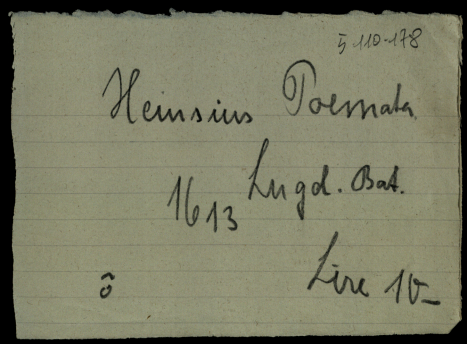 5-110-178
Heinsius Poemata
Lugd. Bat.
1613
Lire 10-
ô